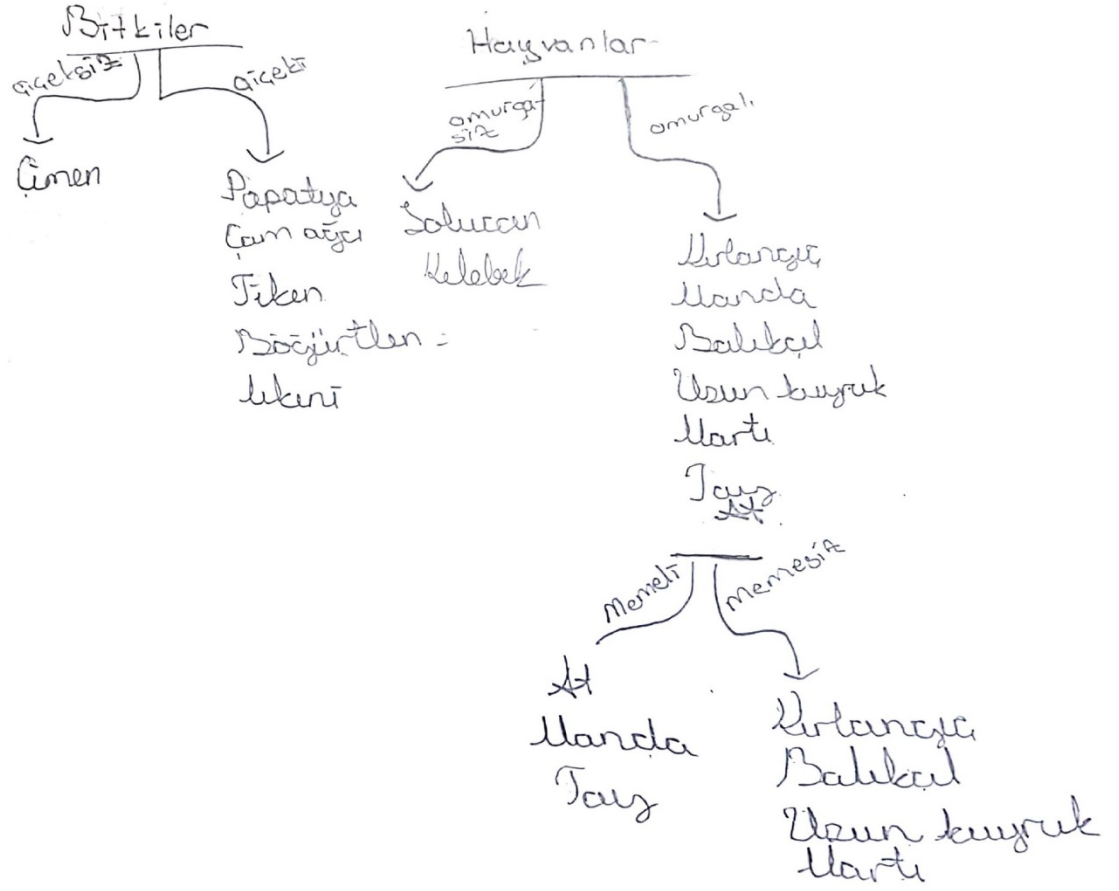 Bitkiler
çiçeksiz
çiçekli
Çimen
Papatya
Çam ağçı
Tiken
Böğürtlen
Hayvanlar
omurga-
sız
omurgalı
Solucan
Kelebek
Kırlangıç
Manda
Balıkçıl
Uzun kuyruk
Martı
Tay
At
Memeli
Memesiz
At
Manda
Tay
Kırlangıç
Balıkçıl
Uzun kuyruk
Martı